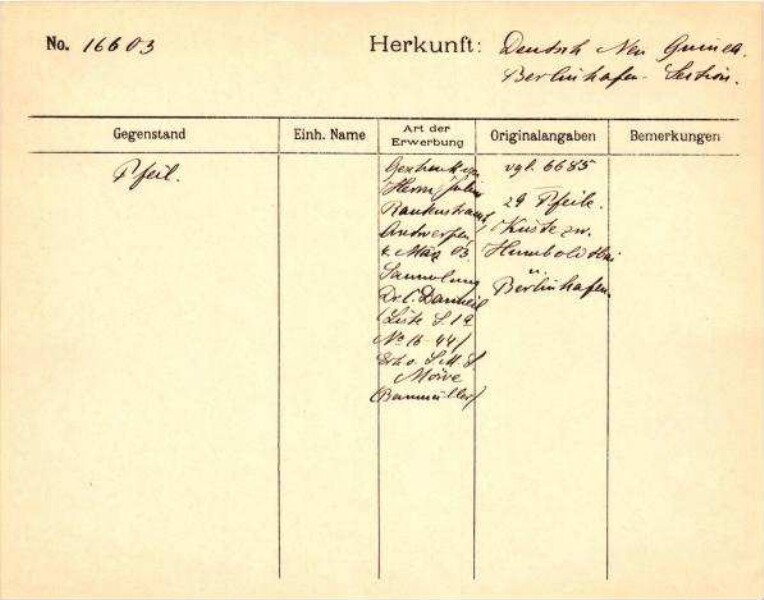 No. 16603 Herkunft: Deutsch Neu Guinea.
Berlinhafen-Section.
Gegenstand Einh. Name Art der Erwerbung Originalangaben Bemerkungen
Pfeil.
Geschenk von
Herrn Julius
Rautenstrauch,
Antwerpen,
4. März 03.
Sammlung
Dr. C. Danneil
(Liste S. 19
No 16-44)
S.M.S.
Möwe
(Baumüller)
vgl. 6685
29 Pfeile.
Küste zw.
Humboldtbai
u.
Berlinhafen.